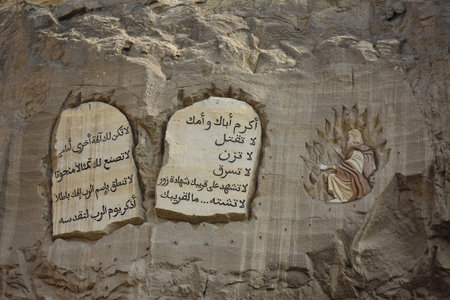 لا تكن لك آلهة أخرى أمامي
لا تصنع لك تمثالا منحوتا
لا تنطق بإسم الرب إلهك باطلا
أذكر يوم الرب لتقدسه
أكرم أباك وأمك
لا تقتل
لا تزن
لا تسرق
لا تشهد على قريبك شهادة زور
لا تشته... مالقريبك